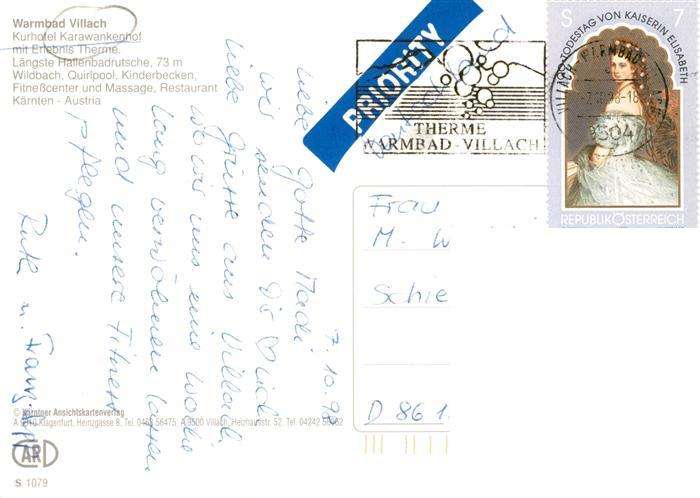 Warmbad Villach
Kurhotel Karawankenhof
mit Erlebnis Therme.
Längste Hallenbadrutsche, 73 m
Wildbach, Quirlpool, Kinderbecken,
Fitneßcenter und Massage, Restaurant
Kärnten - Austria
PRIORITY
THERME
WARMBAD-VILLACH
S 7
100. TODESTAG VON KAISERIN ELISABETH
REPUBLIK ÖSTERREICH
7.10.98
Liebe Gotte Madi
wir senden Dir
liebe Grüsse aus Villach
wo wir uns eine Woche
lang verwöhnen lassen
und unsere Fitness
pflegen.
Ruth u. Franz
Frau
M. W
Schie
D 861
© Kärntner Ansichtskartenverlag
A 9010 Klagenfurt, Heinzgasse 8, Tel. 0463 56475, A 9500 Villach,
CARD
S 1079